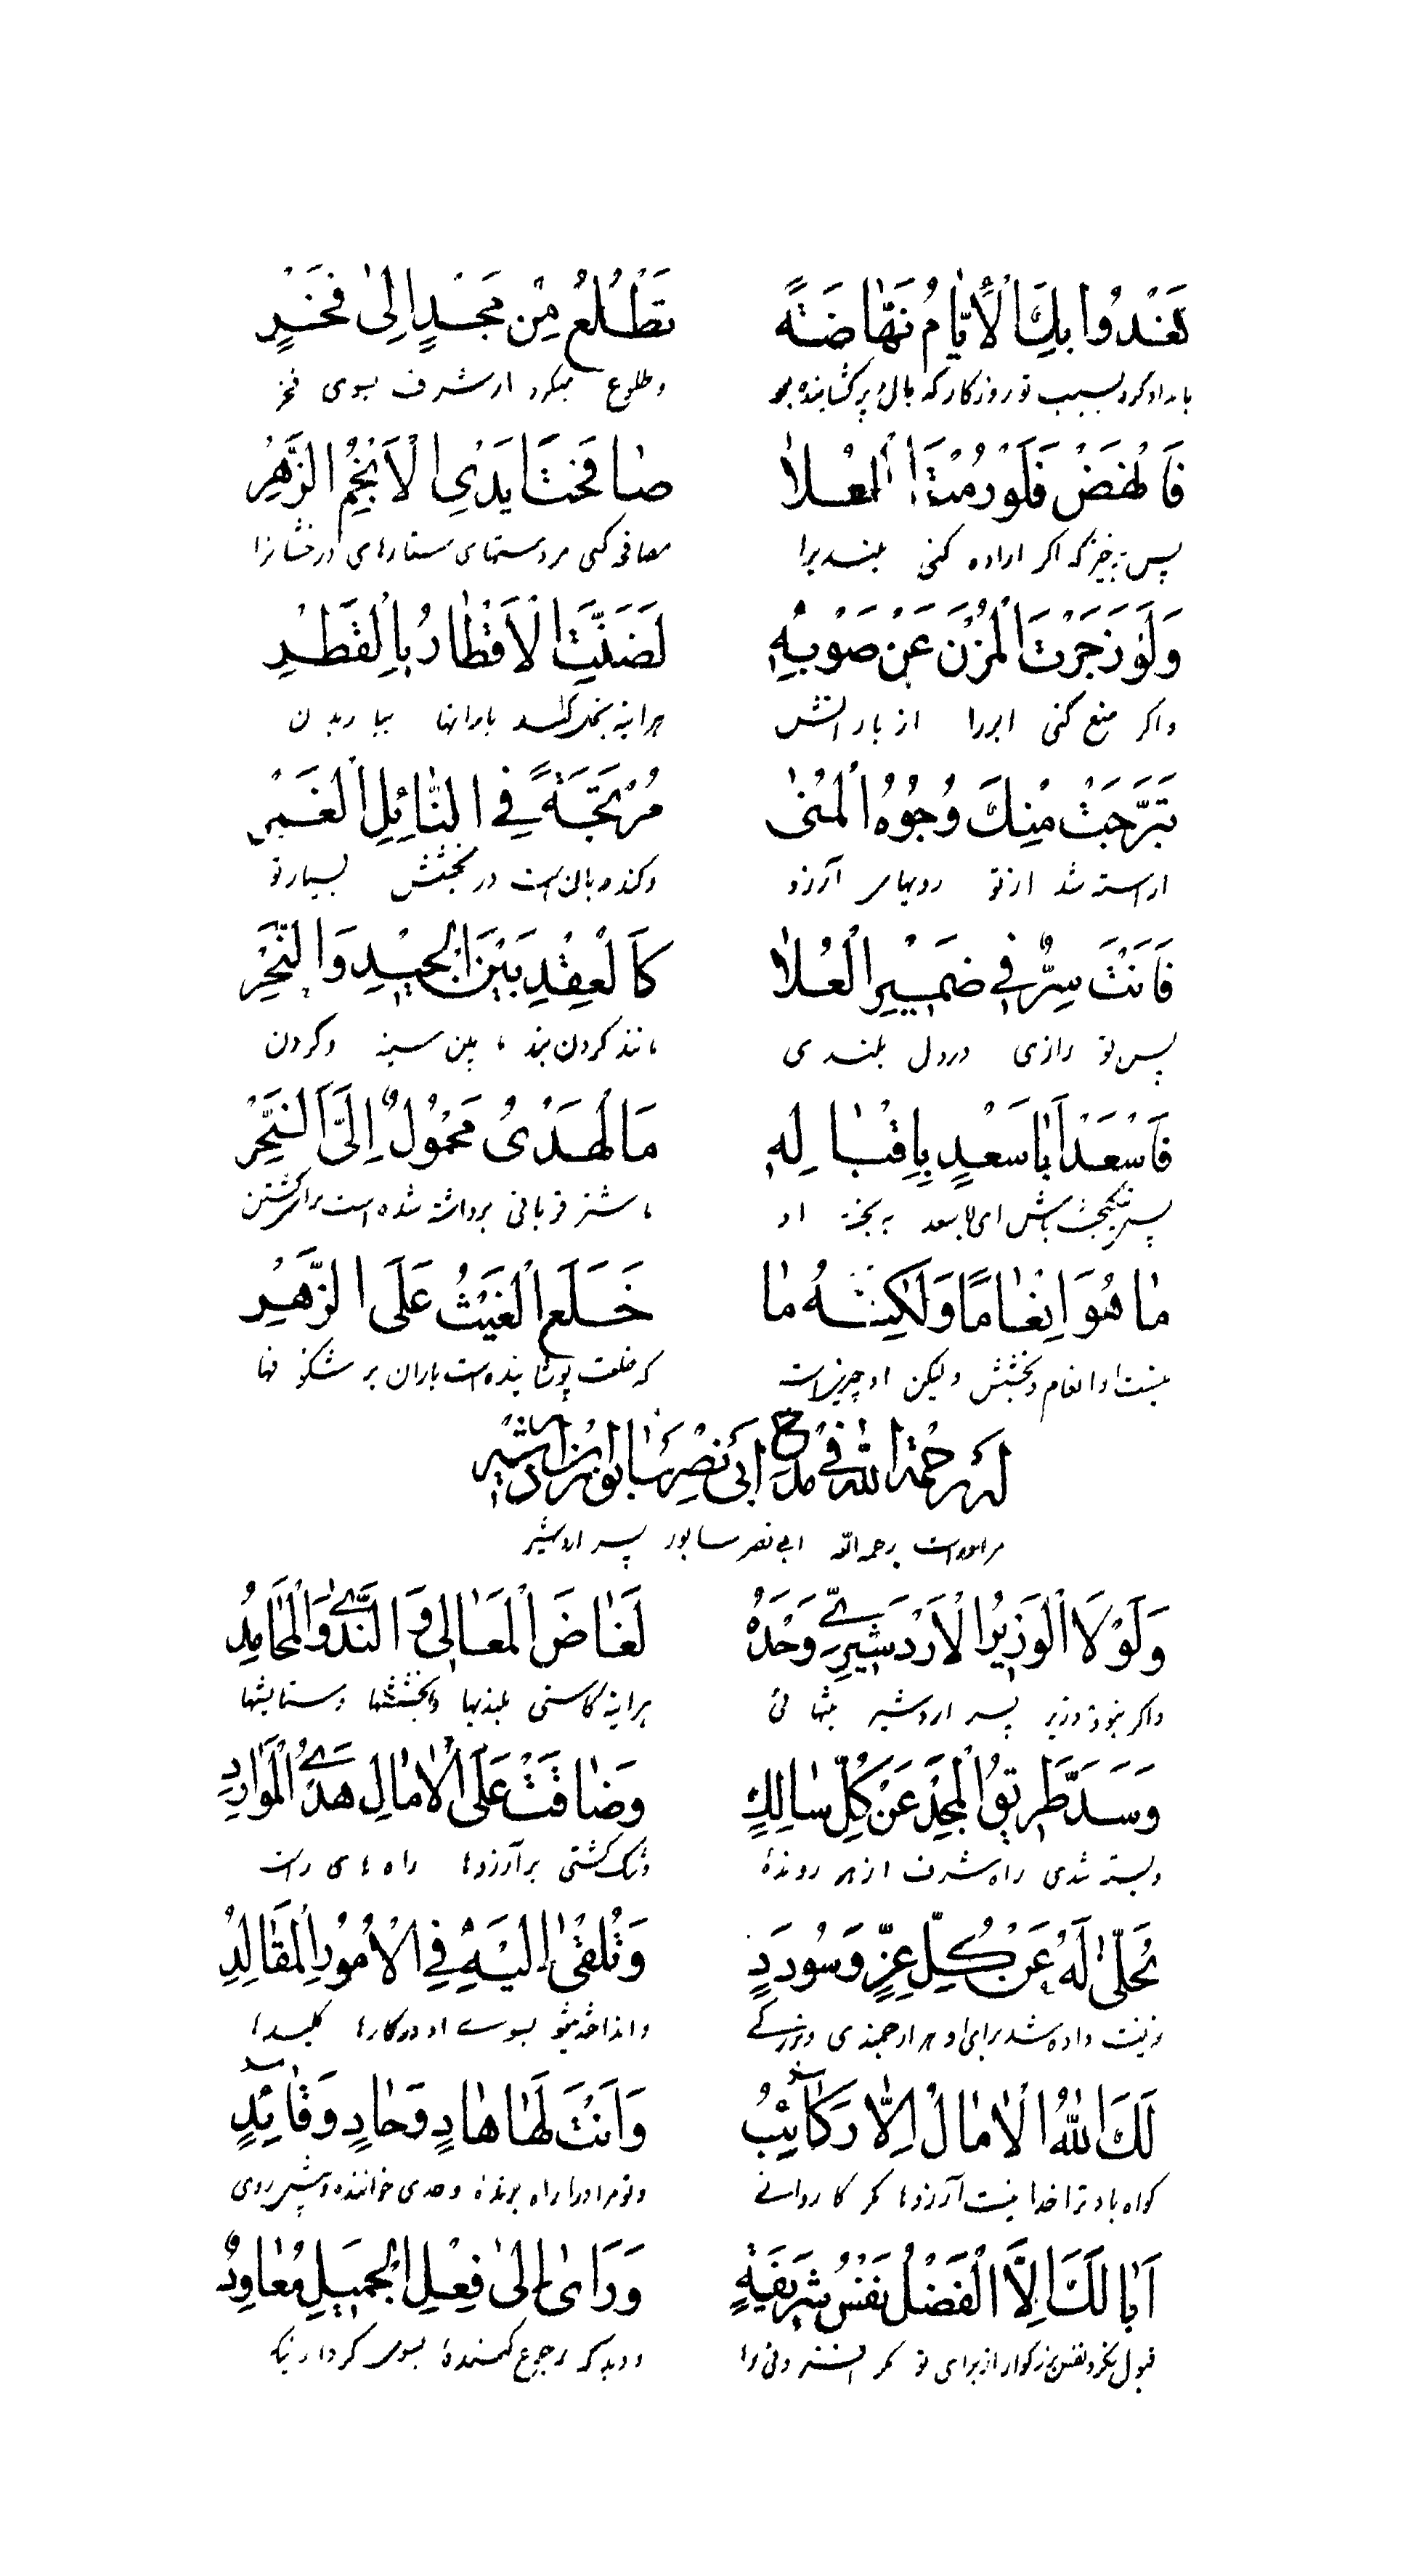 تَغْدُوا بِكَ الْأَيَّامُ نَهَّاضَةً تَطْلُعُ مِنْ مَجْدٍ اِلىٰ فَخْرٍ
بامداد کرد بسبب تو روزگار که بال و پر گشاینده بود وطلوع میکرد از شرف بسوی فخر
فَانْهَضْ فَلَوْ رُمْتَ الْعُلاٰ صٰافَحْتَ اَيْدِی الْاَنْجُمِ الزَّهْرِ
پس برخیز که اگر اراده کنی بلندیرا مصافحه کنی مر دستهای ستارهای درخشانرا
وَلَوْ زَجَرْتَ الْمُزْنَ عَنْ صَوْبِهِ لَضَنَّتِ الْاَقْطٰارُ بِالْقَطْرِ
واگر منع کنی ابررا از بارانش هراینه بارانها بباریدن
تَبَرَّجَتْ مِنْكَ وُجُوهُ الْمُنىٰ مُرْتَجَّةً فِی النّٰائِلِ الْغَمْرِ
اراسته شد از تو رویهای آرزو در بخشش بسیار تو
فَاَنْتَ سِرٌّ فِی ضَمِيرِ الْعُلاٰ كَالْعِقْدِ بَيْنَ الْجِيْدِ وَالنَّحْرِ
پس تو رازی در دل بلندی مانند گردن بند ما بین سینه وگردن
فَاسْعَدْ اَبٰا سَعْدٍ بِاِقْبٰالِهِ مَا لْهَدْیُ مَحْمُوْلٌ اِلَی النَّحْرِ
پس نیکبخت باش ای ابا سعد به بخت او ما شتر قربانی برداشته شده است برای کشتن
مٰا هُوَ اِنْعٰامًا وَلٰكِنَّهُ مٰا خَلَعَ الْغَيْثُ عَلَی الزَّهْرِ
نیست او انعام وبخشش ولیکن او چیزیست که خلعت پوشانیده است باران بر شکوفها
لَهُ رَحِمَهُ اللّٰهُ فِی مَدْحِ اَبی نَصْرِ سٰابُورَ بْنِ اَرْدَشِيْرَ
مر اوراست رحمه الله ابی نصر سابور پسر اردشیر
وَلَوْلَا الْوَزِيْرُ الْاَرْدَشِيْرِیُّ وَحْدَهُ لَغٰاضَ الْمَعٰالِی وَالنَّدٰی وَالْمَحٰامِدُ
واگر نبود وزیر پسر اردشیر بتنهائی هراینه کاستی بلندیها وبخششها وستایشها
وَسَدَّ طَرِيْقُ الْمَجْدِ عَنْ كُلِّ سٰالِكٍ وَضٰاقَتْ عَلَی الْاٰمٰالِ هَدْیُ الْمَوٰارِدِ
وبسته شدی راه شرف از هر روندهٔ وتنگ گشتی بر آرزوها راه های راست
تُحَلّٰی لَهُ عَنْ كُلِّ عِزٍّ وَسُودَدٍ وَتُلْقٰی اِلَيْهِ فِی الْاُمُوْرِ الْمَقٰالِدُ
وزینت داده شد برای او هر ارجمندی وبزرگی وانداخته میشود بسوی او در کارها کلیدها
لَكَ اللّٰهُ الْاٰمٰالُ اِلّٰا رَكٰائِبُ وَاَنْتَ لَهٰا هٰادٍ وَحٰادٍ وَقٰائِدٍ
گواه باد ترا خدا نیست آرزوها مگر کاروانی وتو مر اورا راه برندهٔ وحدی خوانندهٔ وپیش روی
اَبٰا لَكَ اِلَّا الْفَضْلُ نَفْسٌ شَرِيْفَةٍ وَرَاٰیٌ اِلٰی فِعْلِ الْجَمِيْلِ مُعٰاوِدٌ
قبول نکرد نفس بزرگوار از برای تو مگر افزونی را ودید که رجوع کنندهٔ بسوی کردار نیک